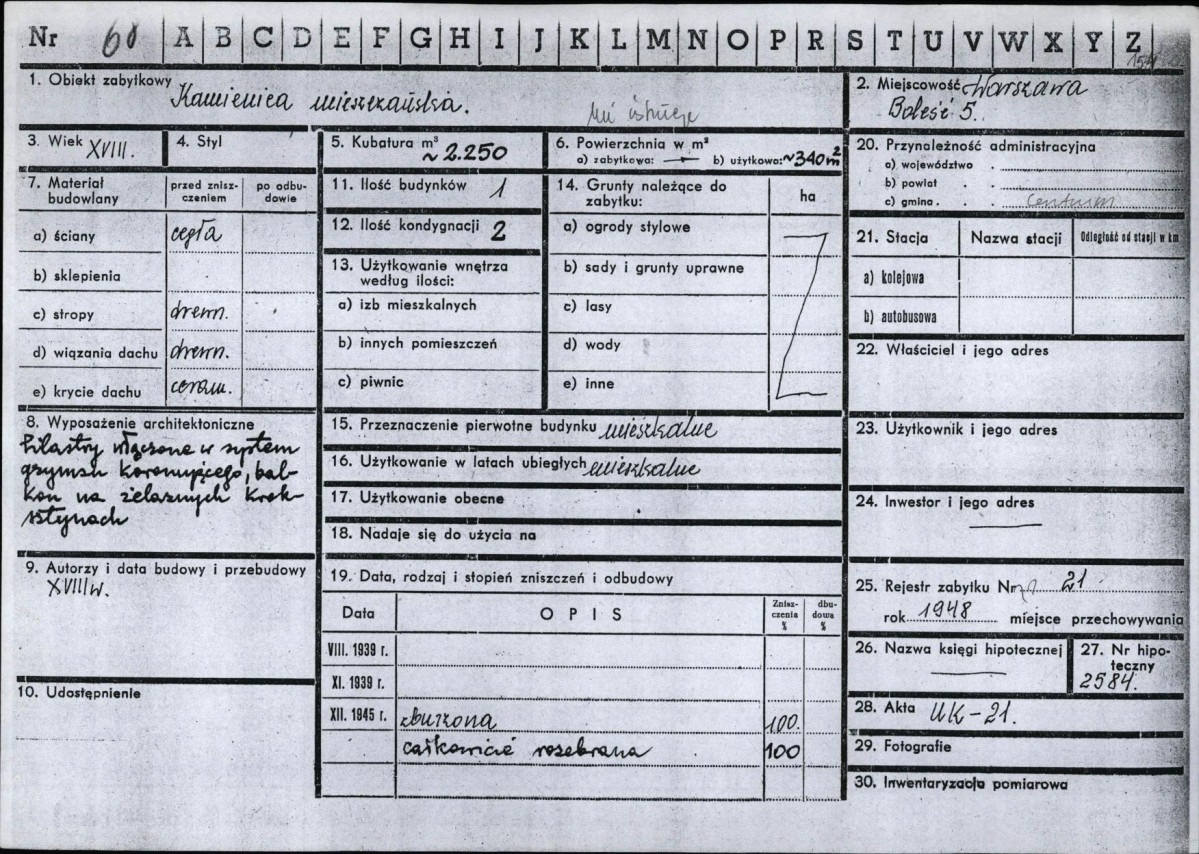 Nr 60 A B C D E F G H I J K L M N O P R S T U V W X Y Z
1. Obiekt zabytkowy Kamienica mieszkańska.
nie istnieje
2. Miejscowość Warszawa
Boleść 5.
3. Wiek XVIII.
4. Styl
5. Kubatura m³ ~2.250
6. Powierzchnia w m²
a) zabytkowa: — b) użytkowa: ~340 m²
7. Materiał budowlany
przed znisz-
czeniem
po odbu-
dowie
a) ściany cegła
b) sklepienia
c) stropy drewn.
d) wiązania dachu drewn.
e) krycie dachu ceram.
8. Wyposażenie architektoniczne
Pilastry włączone w system
gzymsu koronującego, bal-
kon na żelaznych krok-
sztynach
9. Autorzy i data budowy i przebudowy
XVIII w.
10. Udostępnienie
11. Ilość budynków 1
12. Ilość kondygnacji 2
13. Użytkowanie wnętrza
według ilości:
a) izb mieszkalnych
b) innych pomieszczeń
c) piwnic
14. Grunty należące do
zabytku:
ha
a) ogrody stylowe
b) sady i grunty uprawne
c) lasy
d) wody
e) inne
15. Przeznaczenie pierwotne budynku mieszkalne
16. Użytkowanie w latach ubiegłych mieszkalne
17. Użytkowanie obecne
18. Nadaje się do użycia na
19. Data, rodzaj i stopień zniszczeń i odbudowy
Data
OPIS
Znisz-
czenia
%
dbu-
dowa
%
VIII. 1939 r.
XI. 1939 r.
XII. 1945 r. zburzona 100
całkowicie rozebrana 100
20. Przynależność administracyjna
a) województwo
b) powiat
c) gmina Centrum
21. Stacja
Nazwa stacji
Odległość od stacji w km
a) kolejowa
b) autobusowa
22. Właściciel i jego adres
23. Użytkownik i jego adres
24. Inwestor i jego adres
25. Rejestr zabytku Nr 21
rok 1948 miejsce przechowywania
26. Nazwa księgi hipotecznej
27. Nr hipo-
teczny
2584.
28. Akta UK-21.
29. Fotografie
30. Inwentaryzacja pomiarowa